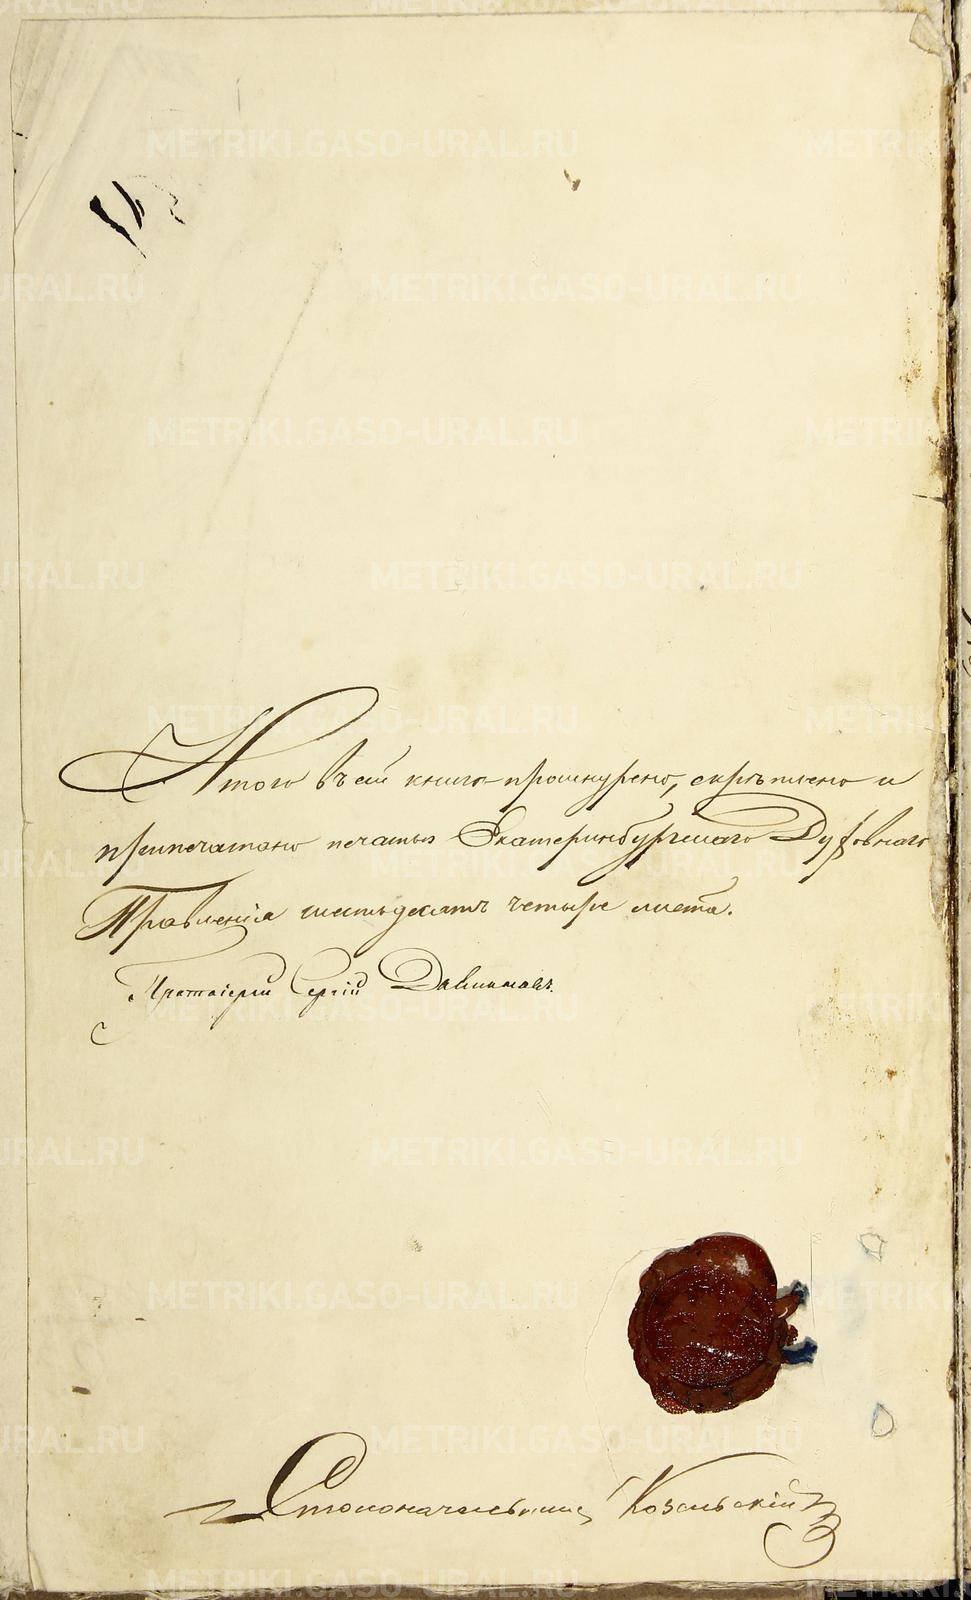 Итого въ сей книге прошнурено, скрѣплено и
припечатано печатью Екатеринбургскаго Духовнаго
Правленія шестьдесятъ четыре листа.
Протоіерей Сергій
Столоначальникъ Козельскій
METRIKI.GASO-URAL.RU